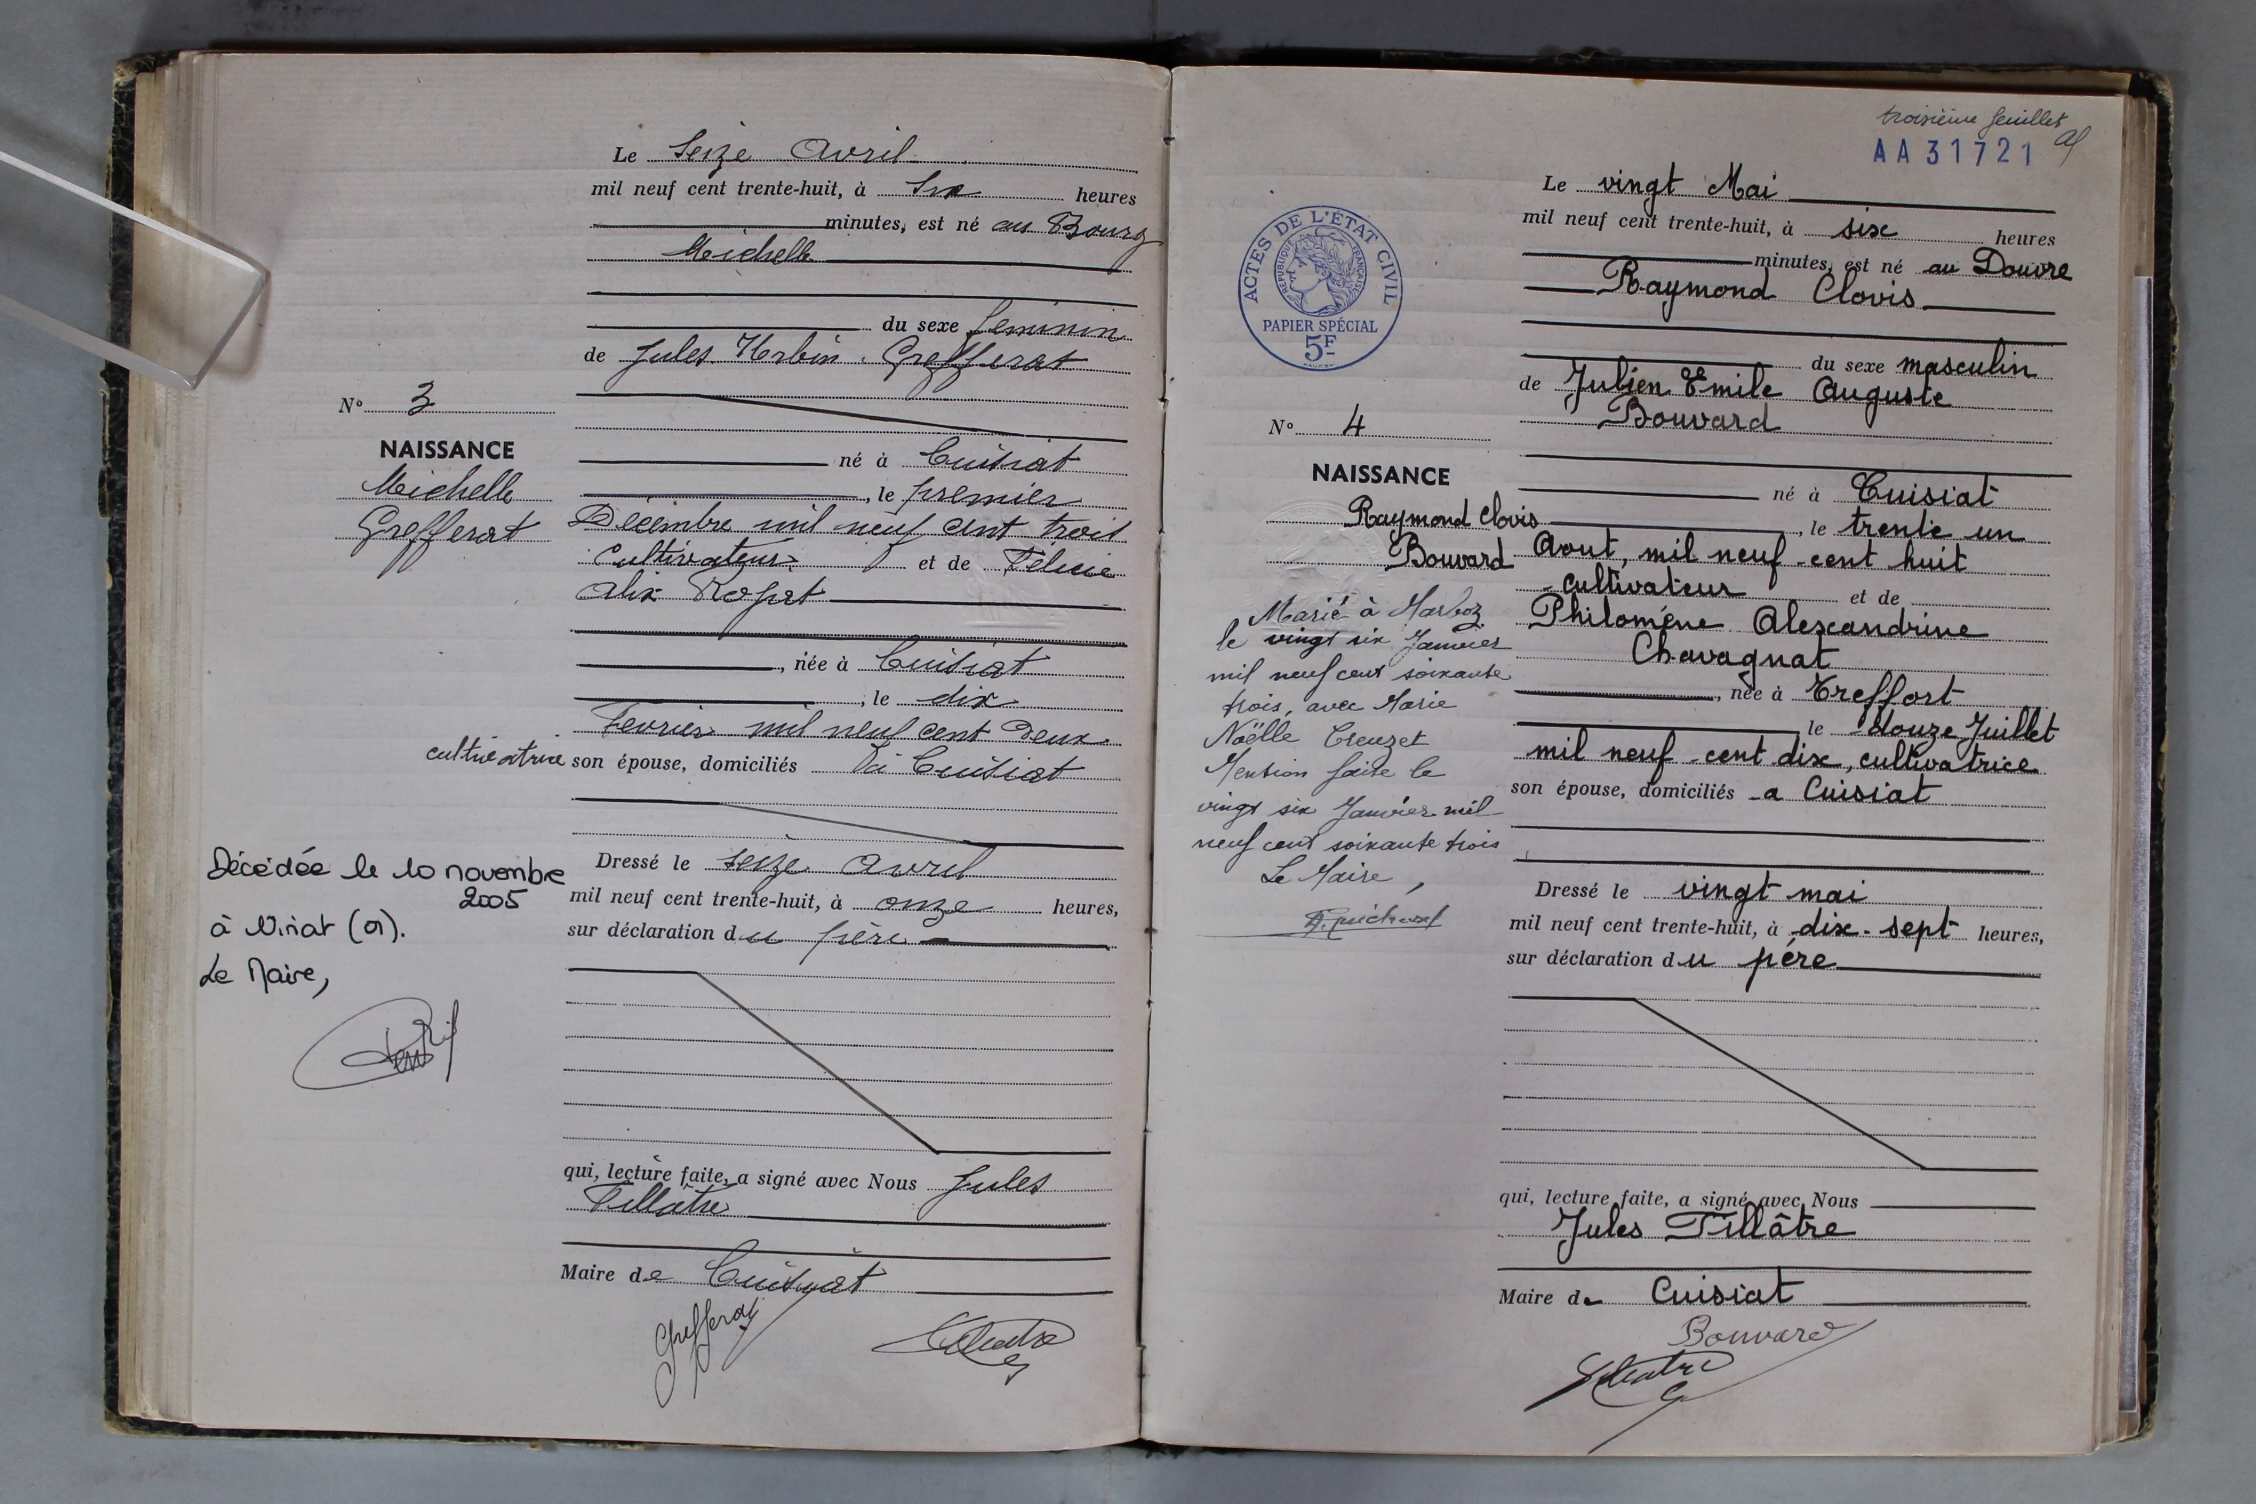 Le Seize Avril
mil neuf cent trente-huit, à Six heures
minutes, est né au Bourg
Michelle
du sexe feminin
de Jules Urbin Grefferat
N° 3
NAISSANCE
Michelle
Grefferat
né à Cuisiat
, le premier
Décembre mil neuf cent trois
cultivateur et de Félicie
Alix
, née à Cuisiat
, le dix
Fevrier mil neuf cent deux
cultivatrice son épouse, domiciliés à Cuisiat
Dressé le seize avril
mil neuf cent trente-huit, à onze heures,
sur déclaration du père
Décédée le 10 novembre
2005
à Viriat (01).
Le Maire,
qui, lecture faite, a signé avec Nous Jules
Tillâtre
Maire de Cuisiat
Grefferat
troisième feuillet
AA 31721
ACTES DE L'ÉTAT CIVIL
RÉPUBLIQUE FRANÇAISE
PAPIER SPÉCIAL
5F
Le vingt Mai
mil neuf cent trente-huit, à six heures
minutes, est né au Douvre
Raymond Clovis
du sexe masculin
de Julien Emile Auguste
Bouvard
N° 4
NAISSANCE
Raymond Clovis
Bouvard
né à Cuisiat
, le trente un
Aout, mil neuf-cent huit
cultivateur et de
Philoméne Alexandrine
Chavagnat
, née à Treffort
le douze Juillet
mil neuf-cent dix, cultivatrice
son épouse, domiciliés a Cuisiat
Marié à Marboz
le vingt six Janvier
mil neuf cent soixante
trois, avec Marie
Noëlle Creuzet
Mention faite le
vingt six Janvier mil
neuf cent soixante trois
Le Maire,
Dressé le vingt mai
mil neuf cent trente-huit, à dix-sept heures,
sur déclaration du pére
qui, lecture faite, a signé avec Nous
Jules Tillâtre
Maire de Cuisiat
Bouvard